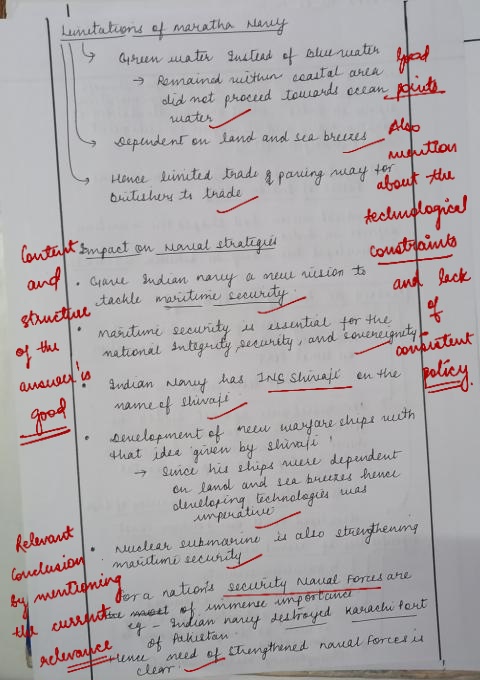 Limitations of Maratha Navy
Green water Instead of Blue water
→ Remained within coastal area
did not proceed towards ocean
water
Dependent on land and sea breezes
Hence limited trade & paving way for
Britishers to trade
Good
points
Also
mention
about the
technological
constraints
and lack
of
consistent
policy.
Content
and
structure
of the
answer is
good
Impact on Naval strategies
• Gave Indian navy a new vision to
tackle maritime security.
• Maritime security is essential for the
national Integrity, security, and sovereignty
• Indian Navy has INS Shivaji on the
name of Shivaji.
• Development of new warfare ships with
that idea given by Shivaji
→ Since his ships were dependent
on land and sea breezes hence
developing technologies was
imperative
• Nuclear submarine is also strengthening
maritime security
For a nation's security Naval Forces are
of immense importance
eg - Indian navy destroyed Karachi Port
of Pakistan.
Hence need of strengthened naval forces is
clear.
Relevant
conclusion
by mentioning
the current
relevance